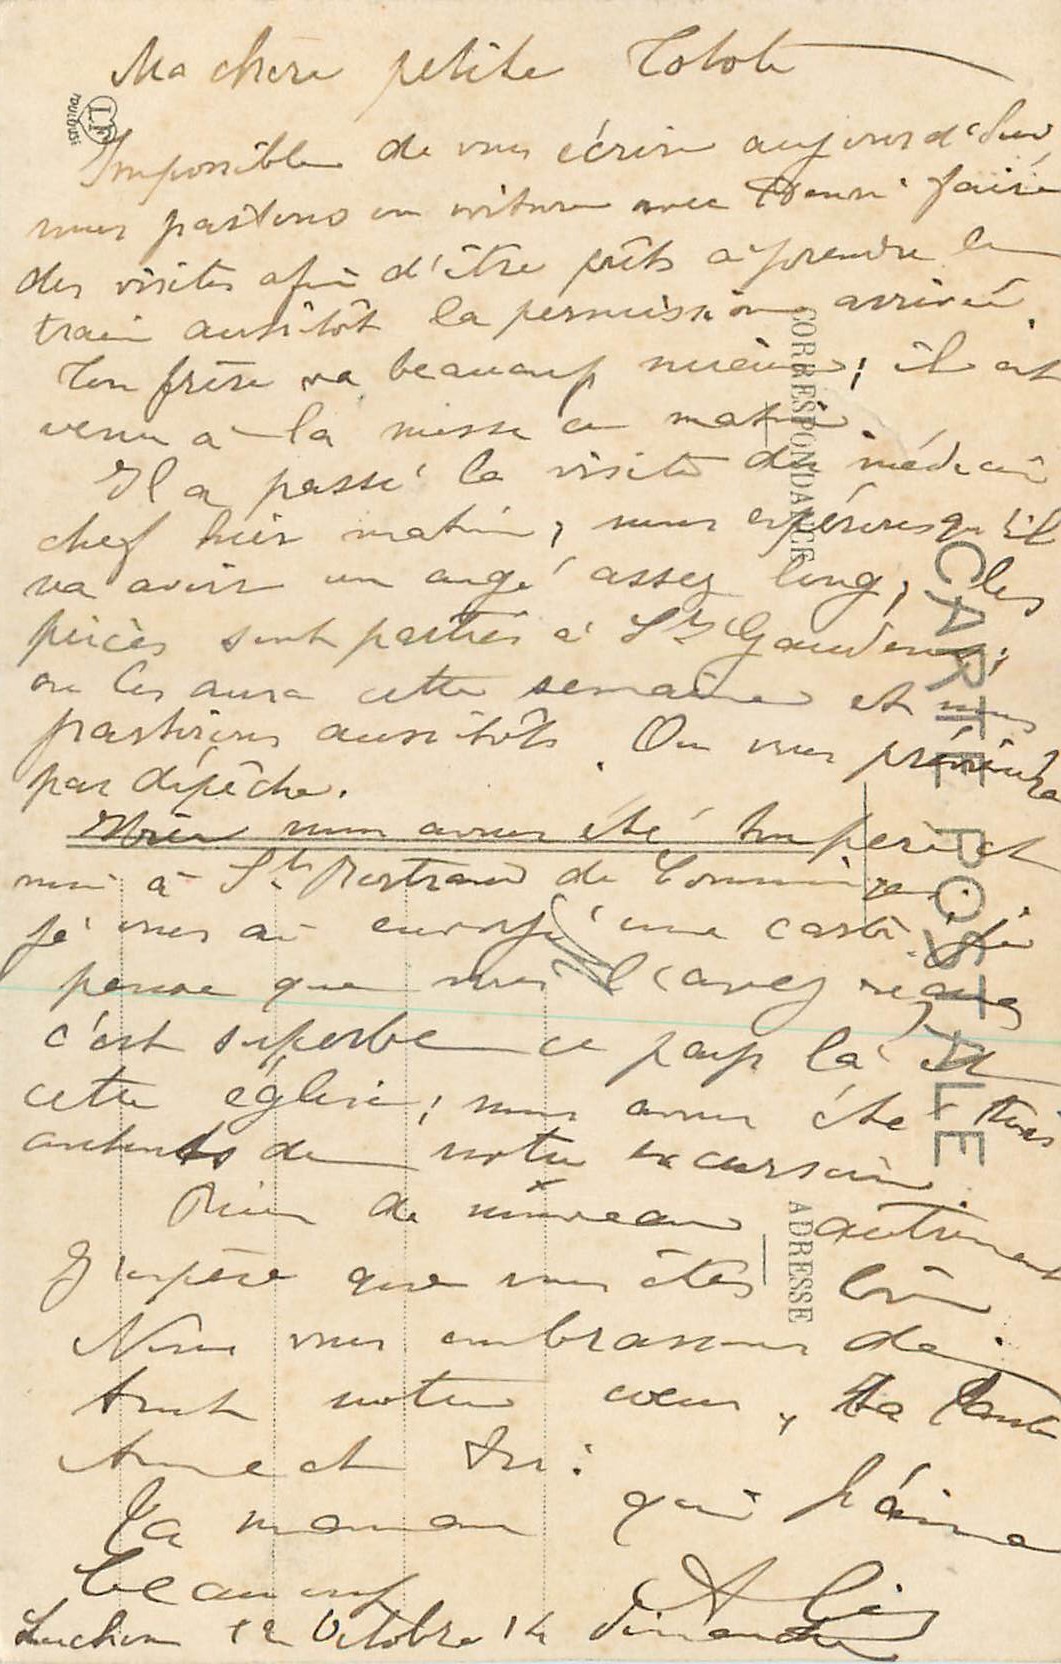 Ma chère petite Totote
Impossible de vous écrire aujourd'hui
nous partons en voiture avec Henri faire
des visites afin d'être prêts a prendre le
train aussitôt la permission arrivée.
Ton frère va beaucoup mieux ; il est
venu à la messe ce matin.
Il a passé la visite du médecin
chef hier matin, nous espérons qu'il
va avoir un congé assez long, les
pièces sont parties à St Gaudens ;
on les aura cette semaine et nous
partirons aussitôt. On vous préviendra
par dépêche.
Hier nous avons été ton père et
moi à St Bertrand de Comminges. je
je vous ai envoyé une carte je
pense que vous l'avez reçue
c'est superbe ce pays là et
cette église ; nous avons été très
contents de notre excursion.
Rien de nouveau autrement
J'espère que vous êtes bien.
Nous vous embrassons de
tout notre cœur, ta tante
et toi.
Ta maman qui t'aime
beaucoup
Luchon 12 Octobre 14 dimanche
CARTE POSTALE
CORRESPONDANCE
ADRESSE
LF
TOULOUSE